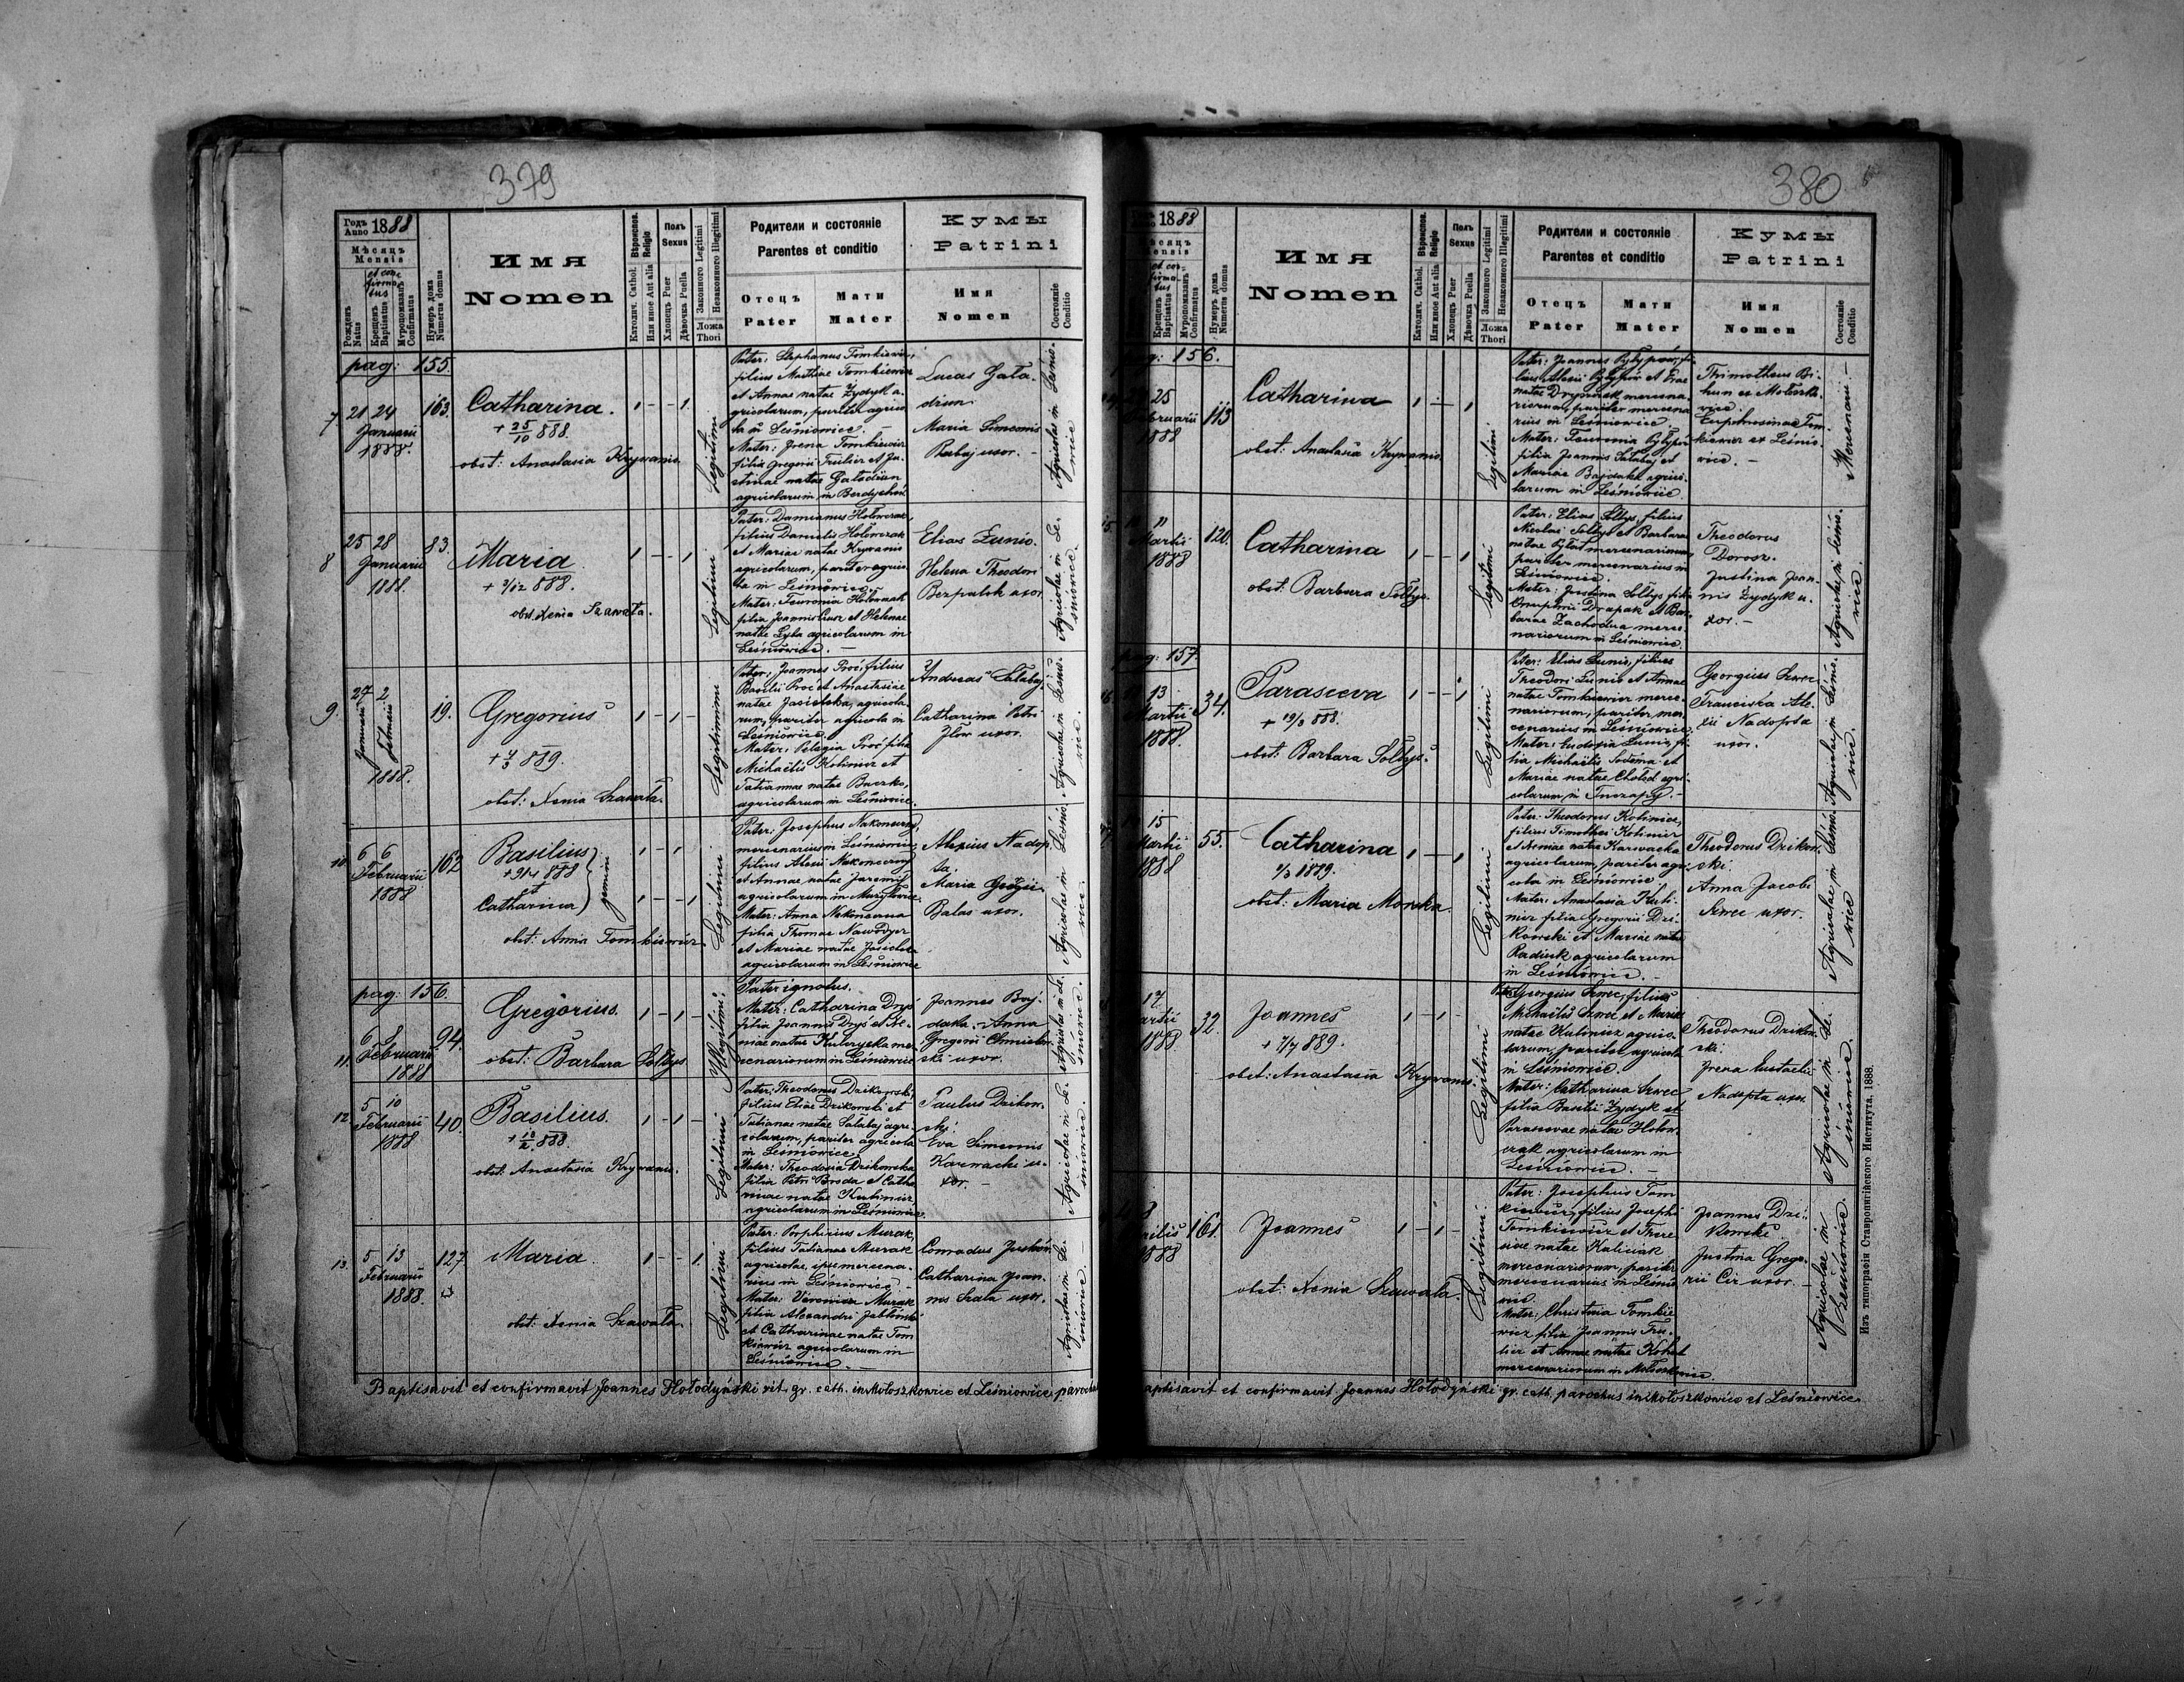 379
Годъ Anno 1888
Мѣсяцъ
Mensis
Рожденъ Natus
et confirmatus
Крещенъ Baptisatus
Мѵропомазанъ Confirmatus
Нумеръ дома Numerus domus
Имя
Nomen
Вѣроиспов. Religio
Католич. Cathol.
Или иное Aut alia
Полъ
Sexus
Хлопецъ Puer
Дѣвочка Puella
Законного Legitimi
Незаконного Illegitimi
Ложа
Thori
Родители и состояніе
Parentes et conditio
Отецъ
Pater
Мати
Mater
Кумы
Patrini
Имя
Nomen
Состояніе
Conditio
pag: 155.
7. 21 24
Januarii
1888.
163.
Catharina.
+ 25/10 888.
obst: Anastasia Krywanis
Legitimi
Pater: Stephanus Tomkiewicz,
filius Matthiae Tomkiewicz
et Annae natae Zydyk a-
gricolarum, pariter agrico-
la in Leśniowice. -
Mater: Irena Tomkiewicz
filia Gregorii
natae
agricolarum in
Lucas Gała-
diun.
Maria Simeonis
uxor. -
Agricolae in Leśnio-
wice
8 25 28
Januarii
1888.
83.
Maria
+ 2/12 888.
obst. Xenia Szawała.
Legitimi
Pater: Damianus Hołowczak,
filius Danielis Hołowczak
et Mariae natae Krywanis
agricolarum, pariter agrico-
la in Leśniowice.
Mater: Feuronia Hołowczak
filia Joannis et Helenae
natae agricolarum in
Leśniowice. -
Elias Łunio.
Helena Theodori
Bezpalok uxor.
Agricolae in Le-
śniowice.
9. 27 2
Januarii Februarii
1888.
19.
Gregorius
+ 4/3 889.
obst: Xenia Szawała.
Legitimi
Pater: Joannes Proć, filius
Basilii Proć et Anastasiae
natae Jasielska, agricola-
rum, pariter agricola in
Leśniowice.
Mater: Pelagia Proć filia
Michaëlis Kolinicz et
Tatiannae natae Buczko,
agricolarum in Leśniowice.
Andreas Sałabaj
Catharina Petri
uxor.
Agricolae in Leśnio-
wice.
10. 6 6
Februarii
1888
162
Basilius
+ 9/4 888
et
Catharina
gemini
obst: Anna Tomkiewicz.
Legitimi
Pater: Josephus Nakoneczny,
mercenarius in Leśniowice,
filius Alexii Nakoneczny
et Annae natae Jaremij
agricolarum in
Mater: Anna Nakoneczna
filia Thomae
et Mariae natae
agricolarum in Leśniowice
Alexius Nadop-
ta.
Maria
Balas uxor.
Agricolae in Leśnio-
wice.
pag: 156.
11. 6 8
Februarii
1888
94.
Gregorius.
obst: Barbara Sołtys.
Illegitimi.
Pater ignotus.
Mater: Catharina Dryś
filia Joannis Dryś et Xe-
niae natae me-
rcenariorum in Leśniowice.
Joannes Baj-
daka. Anna
Gregorii
uxor.
Agricolae in Le-
śniowice.
12 5 10
Februarii
1888
40.
Basilius.
+ 18/2 888.
obst. Anastasia Krywanis.
Legitimi
Pater: Theodorus Dzikowski,
filius Eliae Dzikowski et
Tatianae natae Sałabaj agri-
colarum, pariter agricola
in Leśniowice.
Mater: Theodosia Dzikowska
filia Petri Broda et Catha-
rinae natae Kulinicz
agricolarum in Leśniowice.
Paulus Dzikow-
ski
Eva Simeonis
Karwacki u-
xor. -
Agricolae in Le-
śniowice.
13. 5 13
Februarii
1888.
127.
Maria.
obst: Xenia Szawała.
Legitimi
Pater: Porphirius Murak,
filius Tatianae Murak
agricolae, ipse mercena-
rius in Leśniowice.
Mater: Veronica Murak
filia Alexandri Jabłoński
et Catharinae natae Tom-
kiewicz agricolarum in
Leśniowice. -
Conradus
Catharina Joan-
nis Szata uxor.
Agricolae in Le-
śniowice.
Baptisavit et confirmavit Joannes Hołodyński rit. gr. cath. in Mołoszkowice et Leśniowice parochus
380
1888
Мѣсяцъ
Mensis
et confirmatus
Крещенъ Baptisatus
Мѵропомазанъ Confirmatus
Нумеръ дома Numerus domus
Имя
Nomen
Вѣроиспов. Religio
Католич. Cathol.
Или иное Aut alia
Полъ
Sexus
Хлопецъ Puer
Дѣвочка Puella
Законного Legitimi
Незаконного Illegitimi
Ложа
Thori
Родители и состояніе
Parentes et conditio
Отецъ
Pater
Мати
Mater
Кумы
Patrini
Имя
Nomen
Состояніе
Conditio
156.
25
Februarii
1888
113
Catharina
obst: Anastasia Krywanis
Legitimi
Pater: Joannes
natae mercena-
riorum, pariter mercena-
rius in Leśniowice.
Mater: Feuronia
filia Joannis Sałabaj et
Mariae Bajdaka agrico-
larum in Leśniowice.
Thimotheus Bi-
hun ex Mołoszko-
wice.
Euphrosina Tom-
kiewicz ex Leśnio-
wice. -
Mercenarii. -
11
Martii
1888
120.
Catharina
obst. Barbara Sołtys.
Legitimi
Pater: Elias Sołtys, filius
Nicolai Sołtys et Barbarae
natae mercenariorum,
pariter mercenarius in
Leśniowice.
Mater: Justina Sołtys filia
Onuphrii Drapak et Bar-
barae Zachodna merce-
nariorum in Leśniowice.
Theodorus
Dorosz.
Justina Joan-
nis Zydyk u-
xor. -
Agricolae in Leśnio-
wice.
pag: 157.
13
Martii
1888.
34.
Parasceva
+ 19/3 888.
obst: Barbara Sołtys.
Legitimi
Pater: Elias Łunio, filius
Theodori Łunio et Annae
natae Tomkiewicz merce-
nariorum, pariter mer-
cenarius in Leśniowice.
Mater: Eudoxia Łunio, fi-
lia Michaëlis Sodoma et
Mariae natae Chołod agri-
colarum in Tuczapy. -
Georgius Szwec
Francisca Ale-
xii Nadopta
uxor.
Agricolae in Leśnio-
wice.
15
Martii
1888
55.
Catharina
2/3 1889.
obst: Maria Morska.
Legitimi
Pater: Theodorus Kolinicz,
filius Timothei Kolinicz
et Xeniae natae Karwacka
agricolarum, pariter agri-
cola in Leśniowice.
Mater: Anastasia Kuli-
nicz filia Gregorii Dzi-
kowski et Mariae natae
Radiuk agricolarum
in Leśniowice. -
Theodorus Dzikow-
ski.
Anna Jacobi
Szwec uxor.
Agricolae in Leśnio-
wice
17
Martii
1888
32.
Joannes
+ 7/7 889.
obst: Anastasia Krywanis.
Legitimi
Pater: Georgius Szwec, filius
Michaëlis Szwec et Mariae
natae Kulinicz agrico-
larum, pariter agricola
in Leśniowice.
Mater: Catharina Szwec
filia Basilii Zydyk et
Parascevae natae Hołow-
czak agricolarum in
Leśniowice. -
Theodorus Dzikow-
ski.
Irena Eustachii
Nadopta uxor.
Agricolae in Le-
śniowice.
Aprilis
1888
161.
Joannes
obst: Xenia Szawała.
Legitimi
Pater: Josephus Tom-
kiewicz, filius Josephi
Tomkiewicz et There-
siae natae Haliciak
mercenariorum, pariter
mercenarius in Leśnio-
wice
Mater: Christina Tomkie-
wicz filia Joannis
et Annae natae
mercenariorum in Mołoszkowice.
Joannes Dzi-
kowski
Justina Grego-
rii Cir uxor. -
Agricolae in
Leśniowice.
Baptisavit et confirmavit Joannes Hołodyński gr. cath. parochus in Mołoszkowice et Leśniowice
Изъ типографіи Ставропигійского Института. 1888.